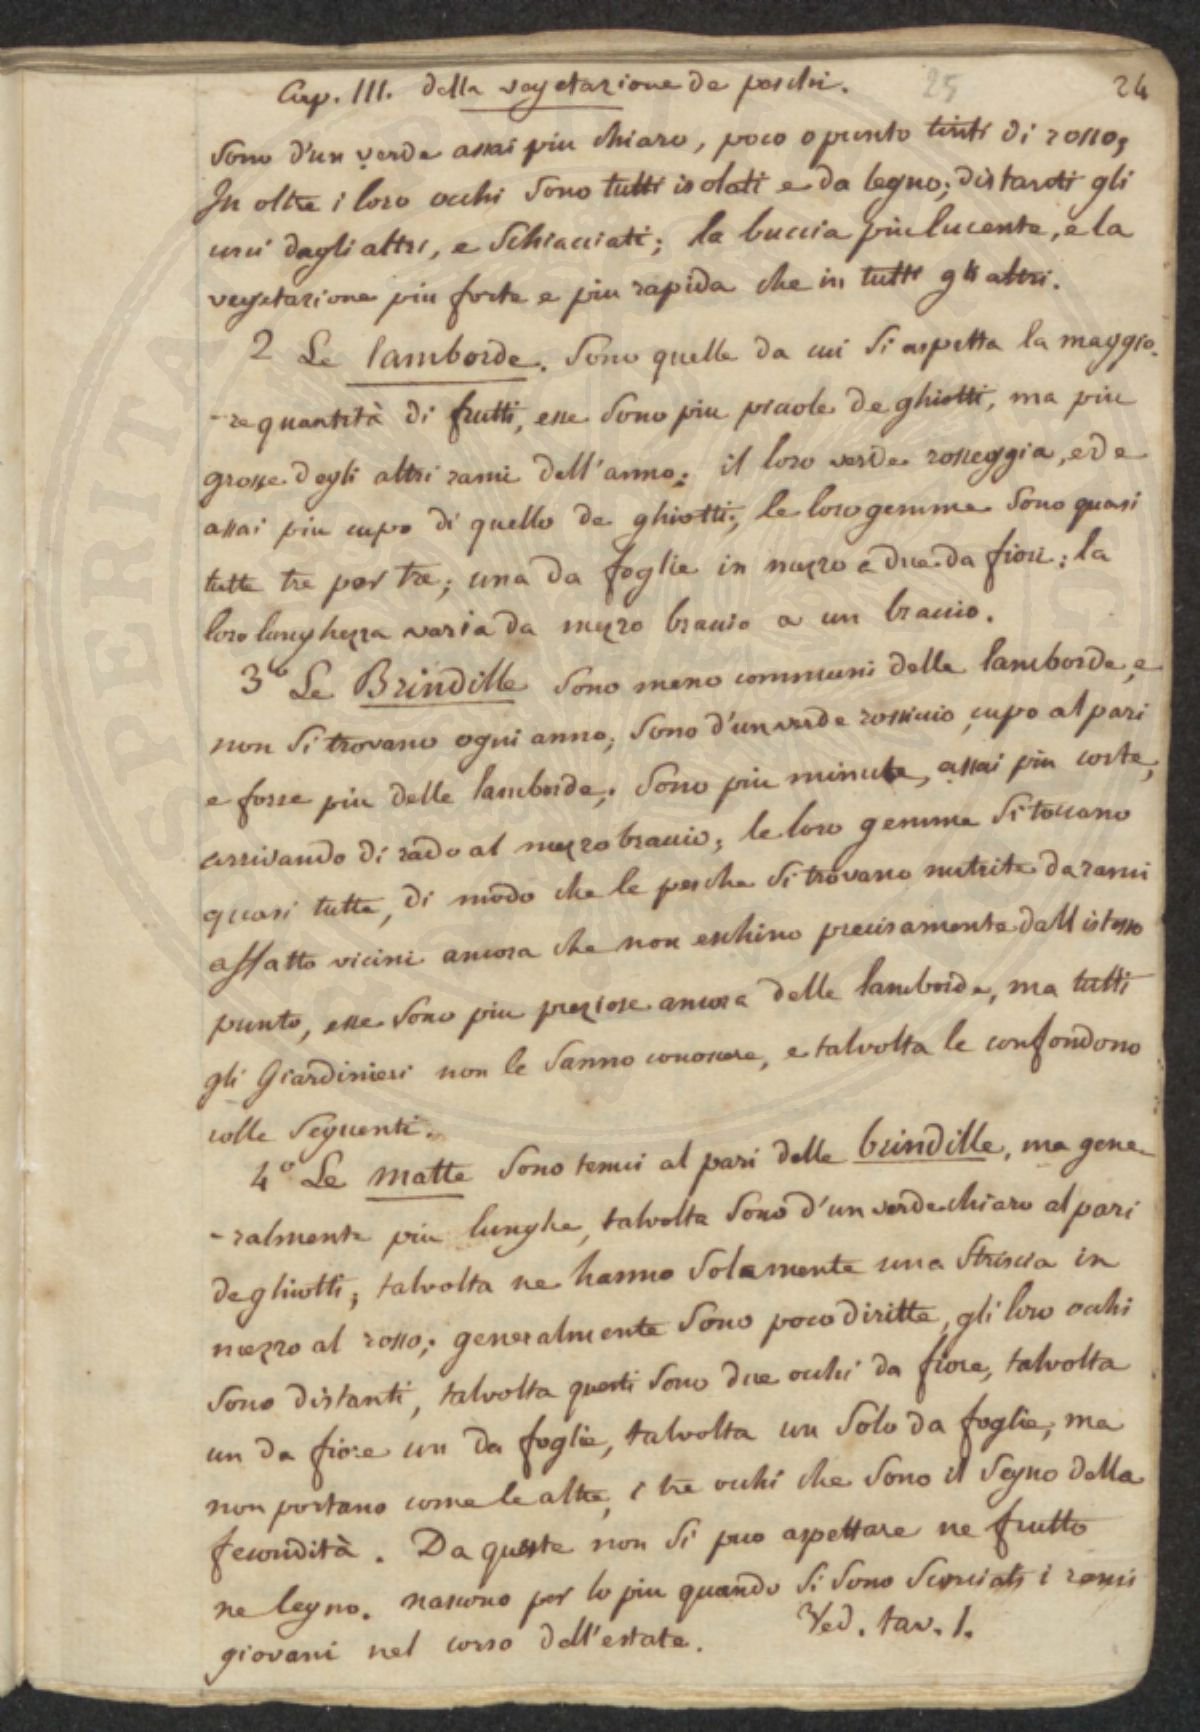 Cap. III. della vegetazione de peschi. 25 24
Sono d'un verde assai piu chiaro, poco o punto tinti di rosso;
In oltre i loro occhi sono tutti isolati e da legno; distanti gli
uni dagli altri, e schiacciati; la buccia piu lucente, e la
vegetazione piu forte e piu rapida che in tutti gli altri.
2 Le lamborde. Sono quelle da cui si aspetta la maggio-
-re quantità di frutti, esse sono piu picole de ghiotti, ma piu
grosse degli altri rami dell'anno; il loro verde rosseggia, ed e
assai piu cupo di quello de ghiotti; le loro gemme sono quasi
tutte tre per tre; una da foglie in mezzo e due da fiori; la
loro lunghezza varia da mezzo braccio a un braccio.
3º Le Brindille sono meno communi delle lamborde, e
non si trovano ogni anno; sono d'un verde rossiccio, cupo al pari
e forse piu delle lamborde; sono piu minute, assai piu corte,
arrivando di rado al mezzo braccio; le loro gemme si toccano
quasi tutte, di modo che le pesche si trovano nutrite da rami
affatto vicini ancora che non eschino precisamente dall istesso
punto, esse sono piu preziose ancora delle lamborde, ma tutti
gli Giardinieri non le sanno conoscere, e talvolta le confondono
colle seguenti.
4º Le matte sono tenui al pari delle brindille, ma gene-
-ralmente piu lunghe, talvolta sono d'un verde chiaro al pari
de ghiotti; talvolta ne hanno solamente una striscia in
mezzo al rosso; generalmente sono poco diritte, gli loro occhi
sono distanti, talvolta questi sono due occhi da fiore, talvolta
un da fiore un da foglie, talvolta un solo da foglie, ma
non portano come le altre, i tre occhi che sono il segno della
fecondità. Da queste non si puo aspettare ne frutto
ne legno. nascono per lo piu quando si sono scorciati i rami
giovani nel corso dell'estate. Ved. tav. 1.
SPERITA